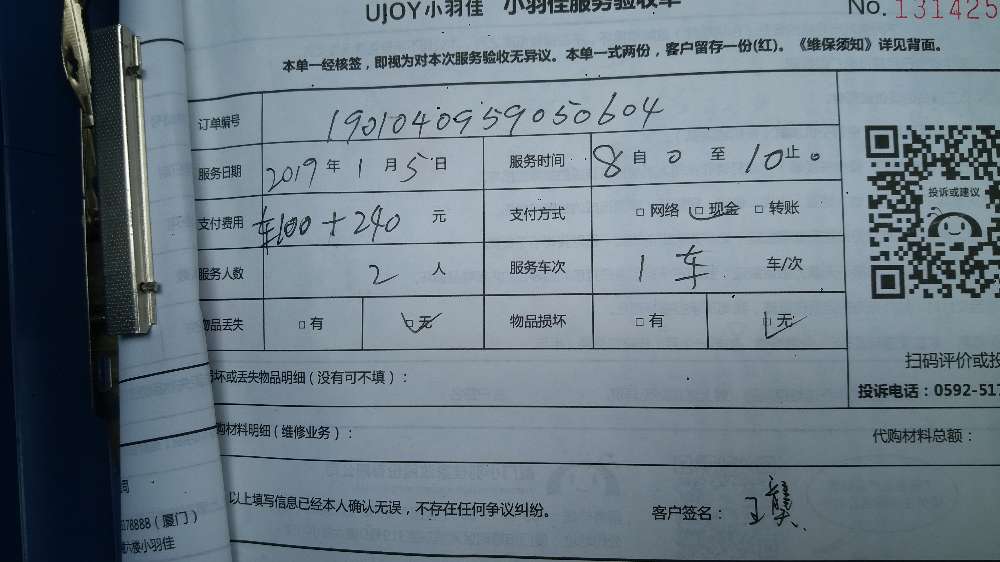 UJOY小羽佳 小羽佳服务验收单
No. 131425
本单一经核签，即视为对本次服务验收无异议。本单一式两份，客户留存一份(红)。《维保须知》详见背面。
订单编号 1901040959050604
服务日期 2019年1月5日 服务时间 8自0至10止。
支付费用 ¥100+240元 支付方式 □网络 □现金 □转账
服务人数 2人 服务车次 1车 车/次
物品丢失 □有 □无 物品损坏 □有 □无
投诉或建议
扫码评价或投
投诉电话：0592-517
坏或丢失物品明细（没有可不填）：
购材料明细（维修业务）： 代购材料总额：
以上填写信息已经本人确认无误，不存在任何争议纠纷。 客户签名：王
司
78888（厦门）
六楼小羽佳